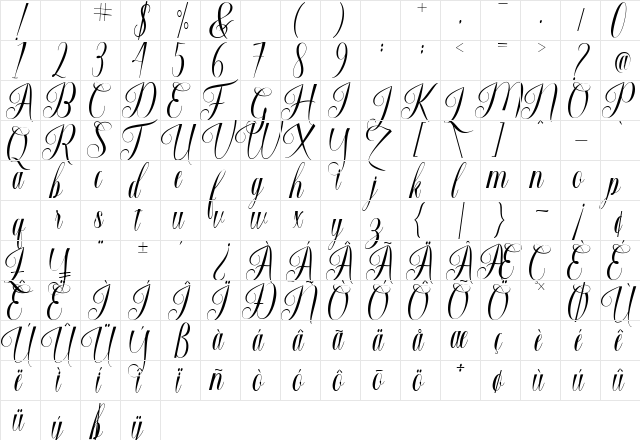 ! # $ % & ( ) + . - . / 0
1 2 3 4 5 6 7 8 9 : ; < = > ? @
A B C D E F G H I J K L M N O P
Q R S T U V W X Y Z [ \ ] ^ _ `
a b c d e f g h i j k l m n o p
q r s t u v w x y z { | } ~ ¡ ¢
£ ¥ ¨ ± ´ ¿ À Á Â Ã Ä Å Æ Ç È É
Ê Ë Ì Í Î Ï Ð Ñ Ò Ó Ô Õ Ö × Ø Ù
Ú Û Ü Ý ß à á â ã ä å æ ç è é ê
ë ì í î ï ñ ò ó ô õ ö ÷ ø ù ú û
ü ý þ ÿ